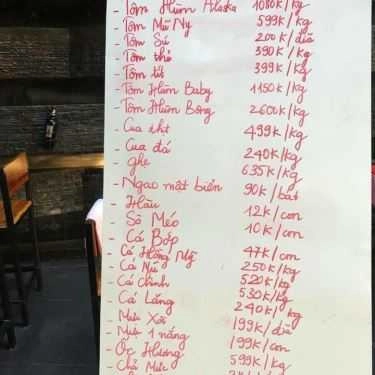 - Tôm Hùm Alaska 1080K/kg
- Tôm Mũ Ny 599K/kg
- Tôm Sú 200K/dĩa
- Tôm thẻ 390K/kg
- Tôm tít 399K/kg
- Tôm Hùm Baby 1150K/kg
- Tôm Hùm Bông 2600K/kg
- Cua thịt 499K/kg
- Cua đá 240K/kg
- ghẹ 635K/kg
- Ngao mật biển 90K/bát
- Hàu 12K/con
- Sò Méo 10K/con
- Cá Bớp
- Cá Hồng Mỹ 47K/con
- Cá Nú 250K/kg
- Cá chình 520K/kg
- Cá Lăng 530K/kg
- Mực Xới 240K/kg
- Mực 1 nắng 199K/dĩa
- Ốc Hương 199K/con
- Chả Mực 599K/kg